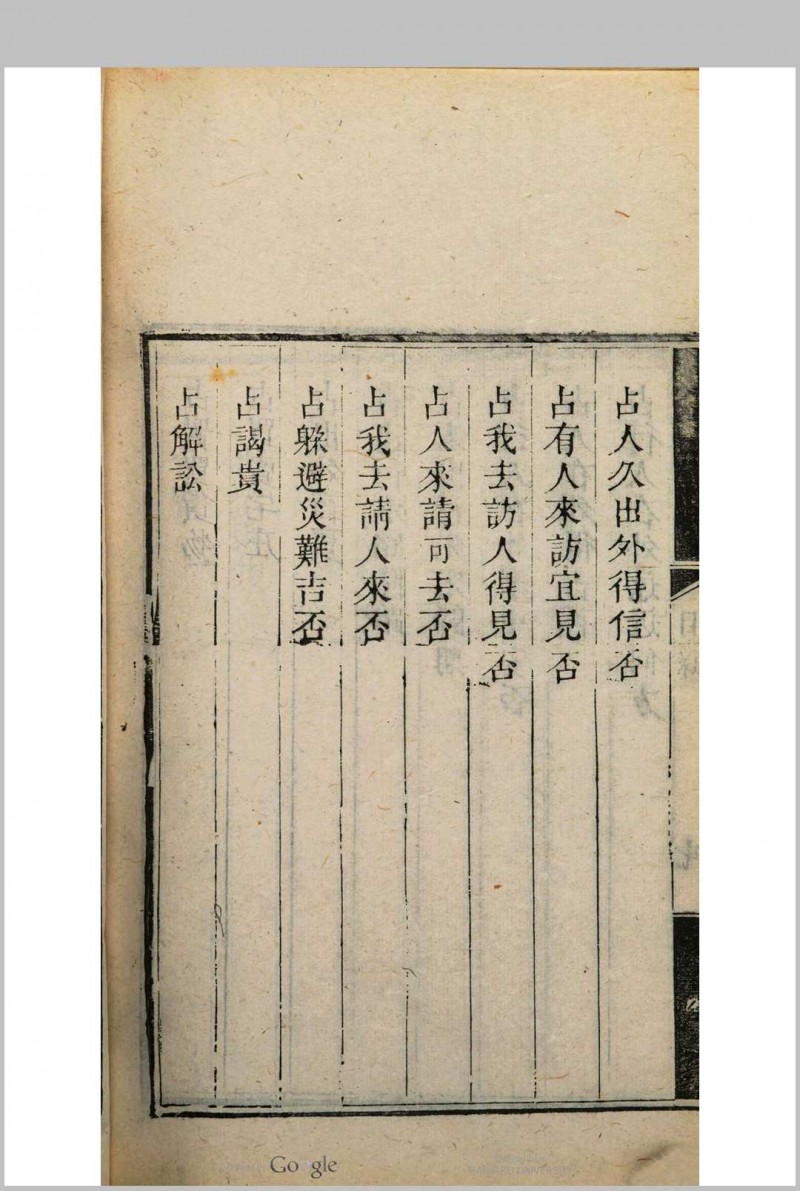 占人久出外得信否
占有人來訪宜見否
占我去訪人得見否
占人來請可去否
占我去請人來否
占躲避災難吉否
占謁貴
占解訟
Google